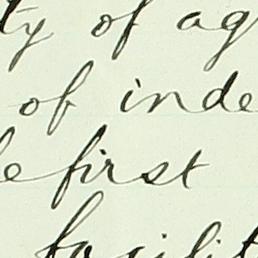 ty of ag
of inde
e first
facilit